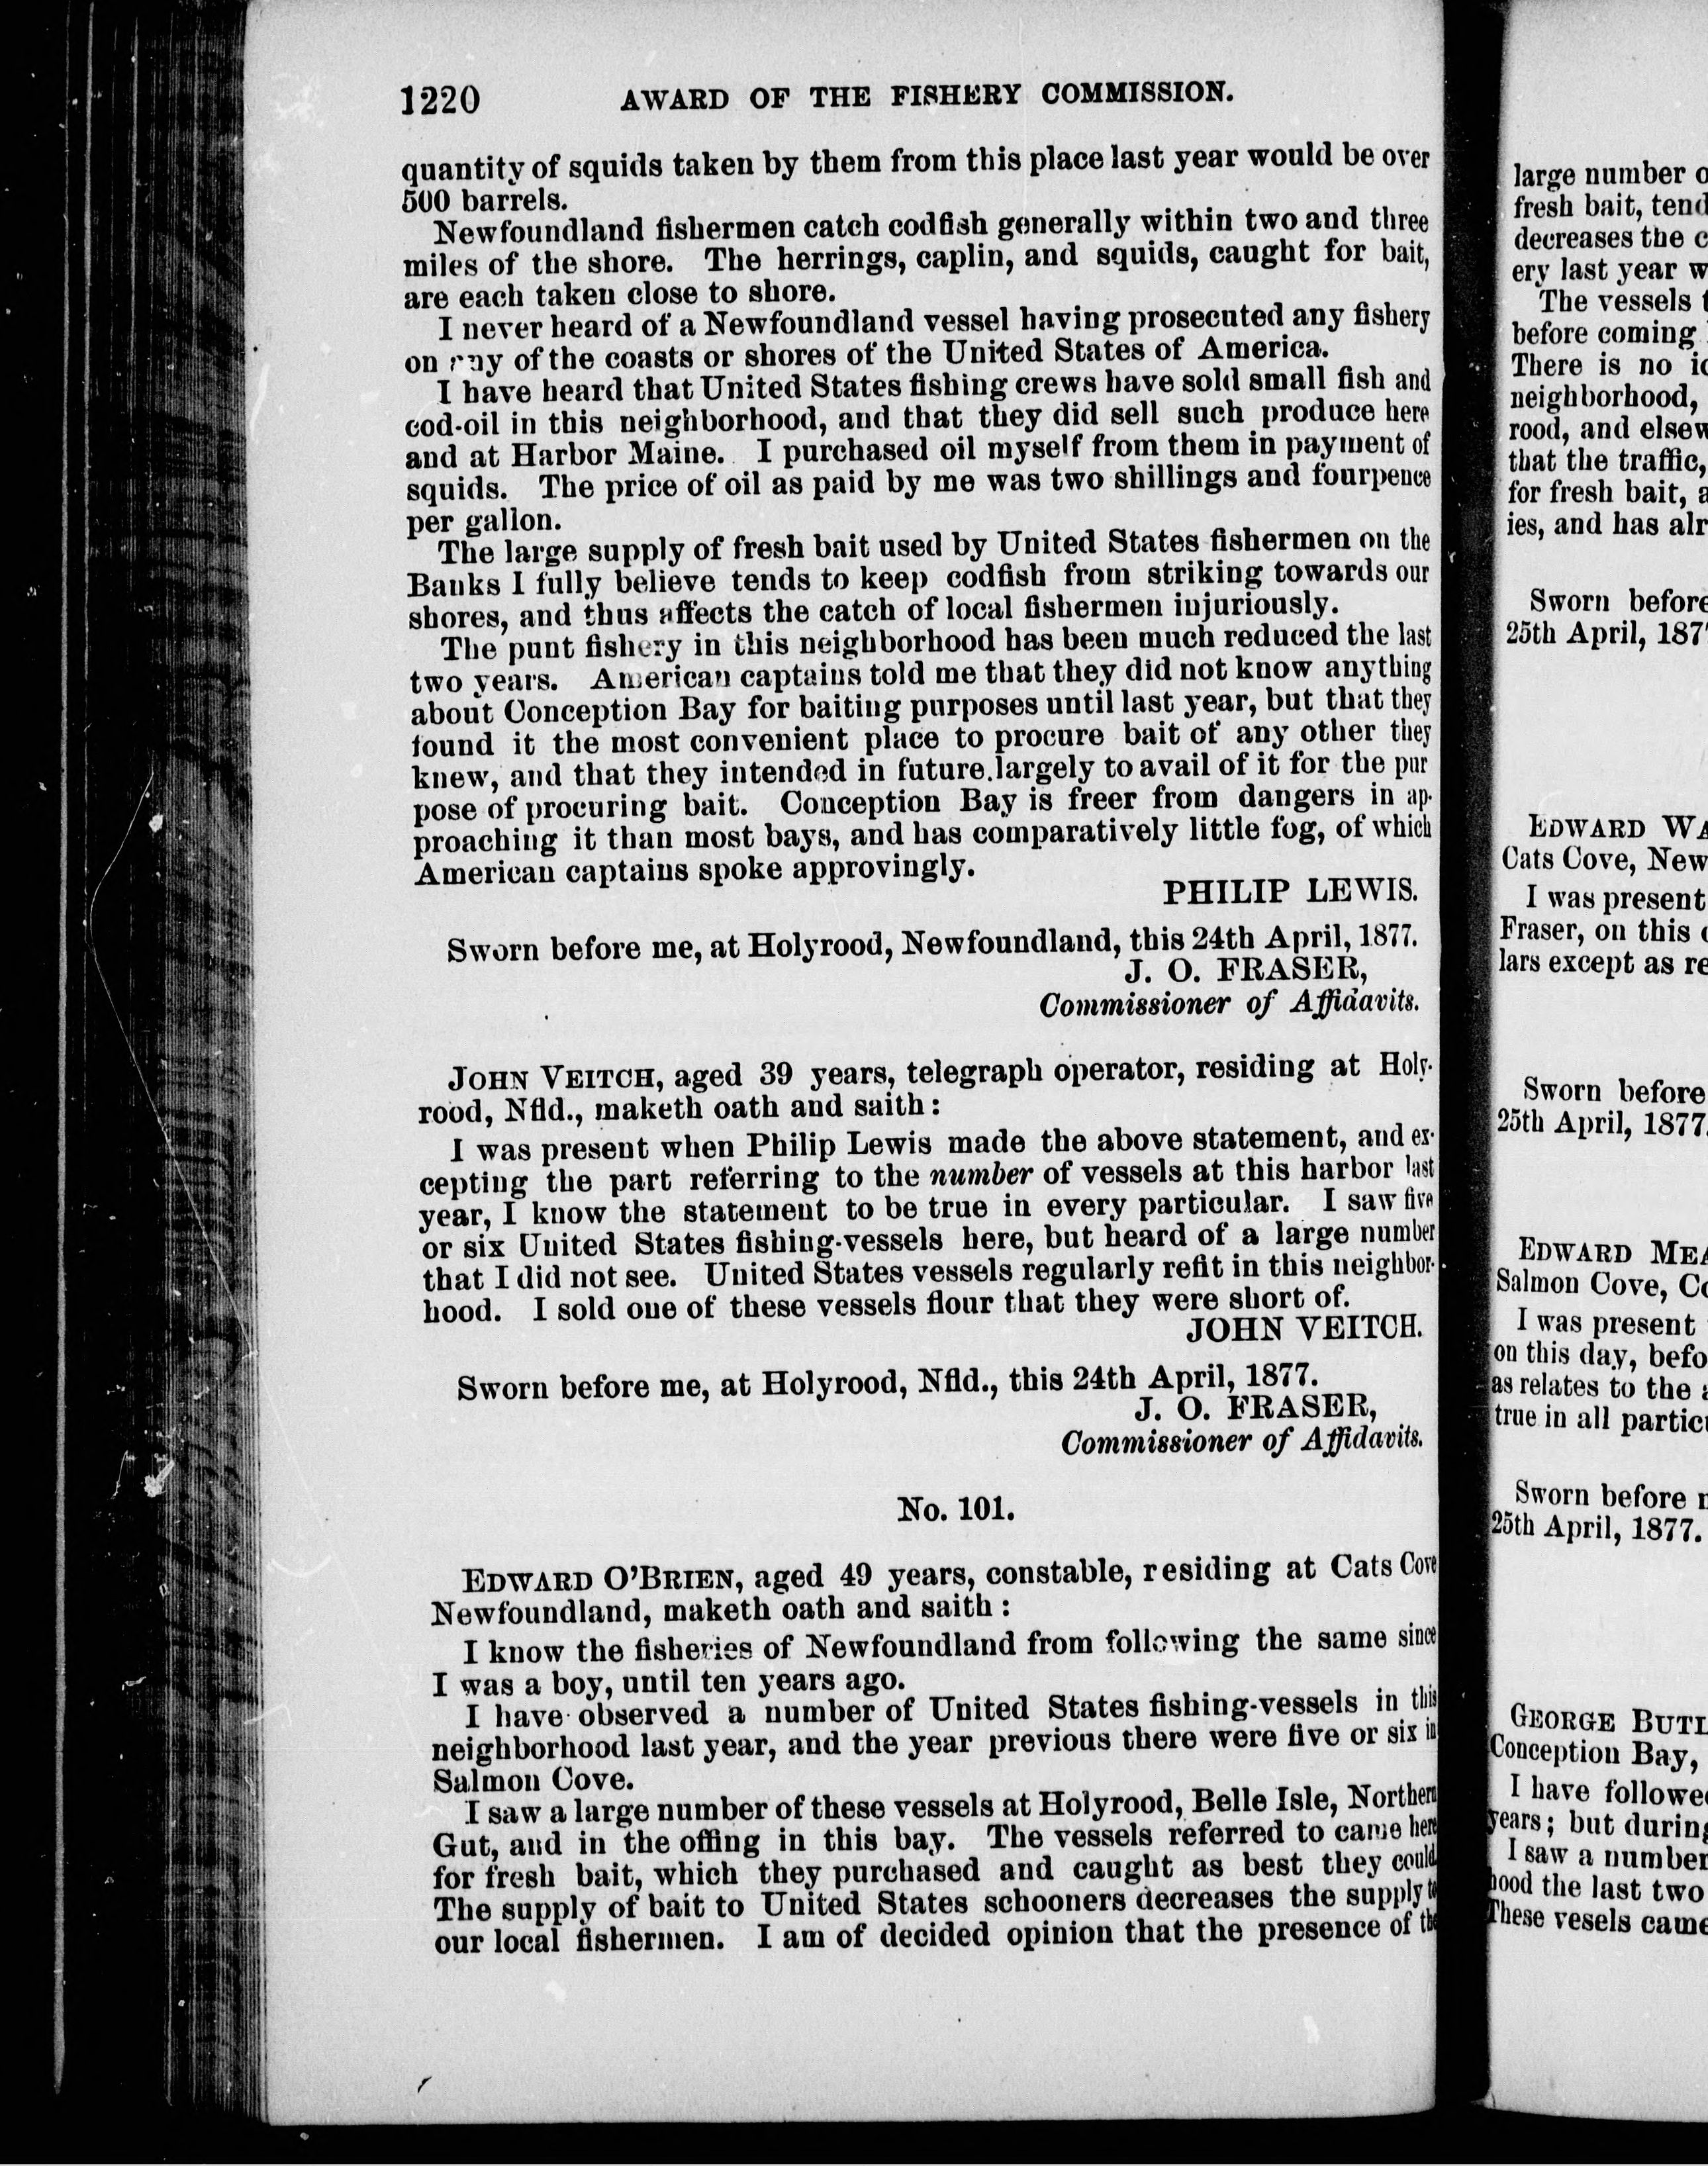 1220 AWARD OF THE FISHERY COMMISSION.
quantity of squids taken by them from this place last year would be over
500 barrels.
Newfoundland fishermen catch codfish generally within two and three
miles of the shore. The herrings, caplin, and squids, caught for bait,
are each taken close to shore.
I never heard of a Newfoundland vessel having prosecuted any fishery
on any of the coasts or shores of the United States of America.
I have heard that United States fishing crews have sold small fish and
cod-oil in this neighborhood, and that they did sell such produce here
and at Harbor Maine. I purchased oil myself from them in payment of
squids. The price of oil as paid by me was two shillings and fourpence
per gallon.
The large supply of fresh bait used by United States fishermen on the
Banks I fully believe tends to keep codfish from striking towards our
shores, and thus affects the catch of local fishermen injuriously.
The punt fishery in this neighborhood has been much reduced the last
two years. American captains told me that they did not know anything
about Conception Bay for baiting purposes until last year, but that they
found it the most convenient place to procure bait of any other they
knew, and that they intended in future largely to avail of it for the pur
pose of procuring bait. Conception Bay is freer from dangers in ap-
proaching it than most bays, and has comparatively little fog, of which
American captains spoke approvingly.
PHILIP LEWIS.
Sworn before me, at Holyrood, Newfoundland, this 24th April, 1877.
J. O. FRASER,
Commissioner of Affidavits.
JOHN VEITCH, aged 39 years, telegraph operator, residing at Holy-
rood, Nfld., maketh oath and saith:
I was present when Philip Lewis made the above statement, and ex-
cepting the part referring to the number of vessels at this harbor last
year, I know the statement to be true in every particular. I saw five
or six United States fishing-vessels here, but heard of a large number
that I did not see. United States vessels regularly refit in this neighbor-
hood. I sold one of these vessels flour that they were short of.
JOHN VEITCH.
Sworn before me, at Holyrood, Nfld., this 24th April, 1877.
J. O. FRASER,
Commissioner of Affidavits.
No. 101.
EDWARD O'BRIEN, aged 49 years, constable, residing at Cats Cove
Newfoundland, maketh oath and saith:
I know the fisheries of Newfoundland from following the same since
I was a boy, until ten years ago.
I have observed a number of United States fishing-vessels in this
neighborhood last year, and the year previous there were five or six in
Salmon Cove.
I saw a large number of these vessels at Holyrood, Belle Isle, Northern
Gut, and in the offing in this bay. The vessels referred to came here
for fresh bait, which they purchased and caught as best they could
The supply of bait to United States schooners decreases the supply to
our local fishermen. I am of decided opinion that the presence of the
large number
fresh bait,
decreases the
ery last year
The vessels
before coming
There is no
neighborhood,
rood, and
that the traffic,
for fresh bait,
ies, and has
Sworn before
25th April,
EDWARD
Cats Cove,
I was present
Fraser, on this
lars except as
Sworn before
25th April, 1877.
EDWARD
Salmon Cove,
I was present
on this day,
as relates to the
true in all
Sworn before
25th April, 1877.
GEORGE
Conception Bay,
I have
years; but
I saw a number
hood the last two
These vesels came